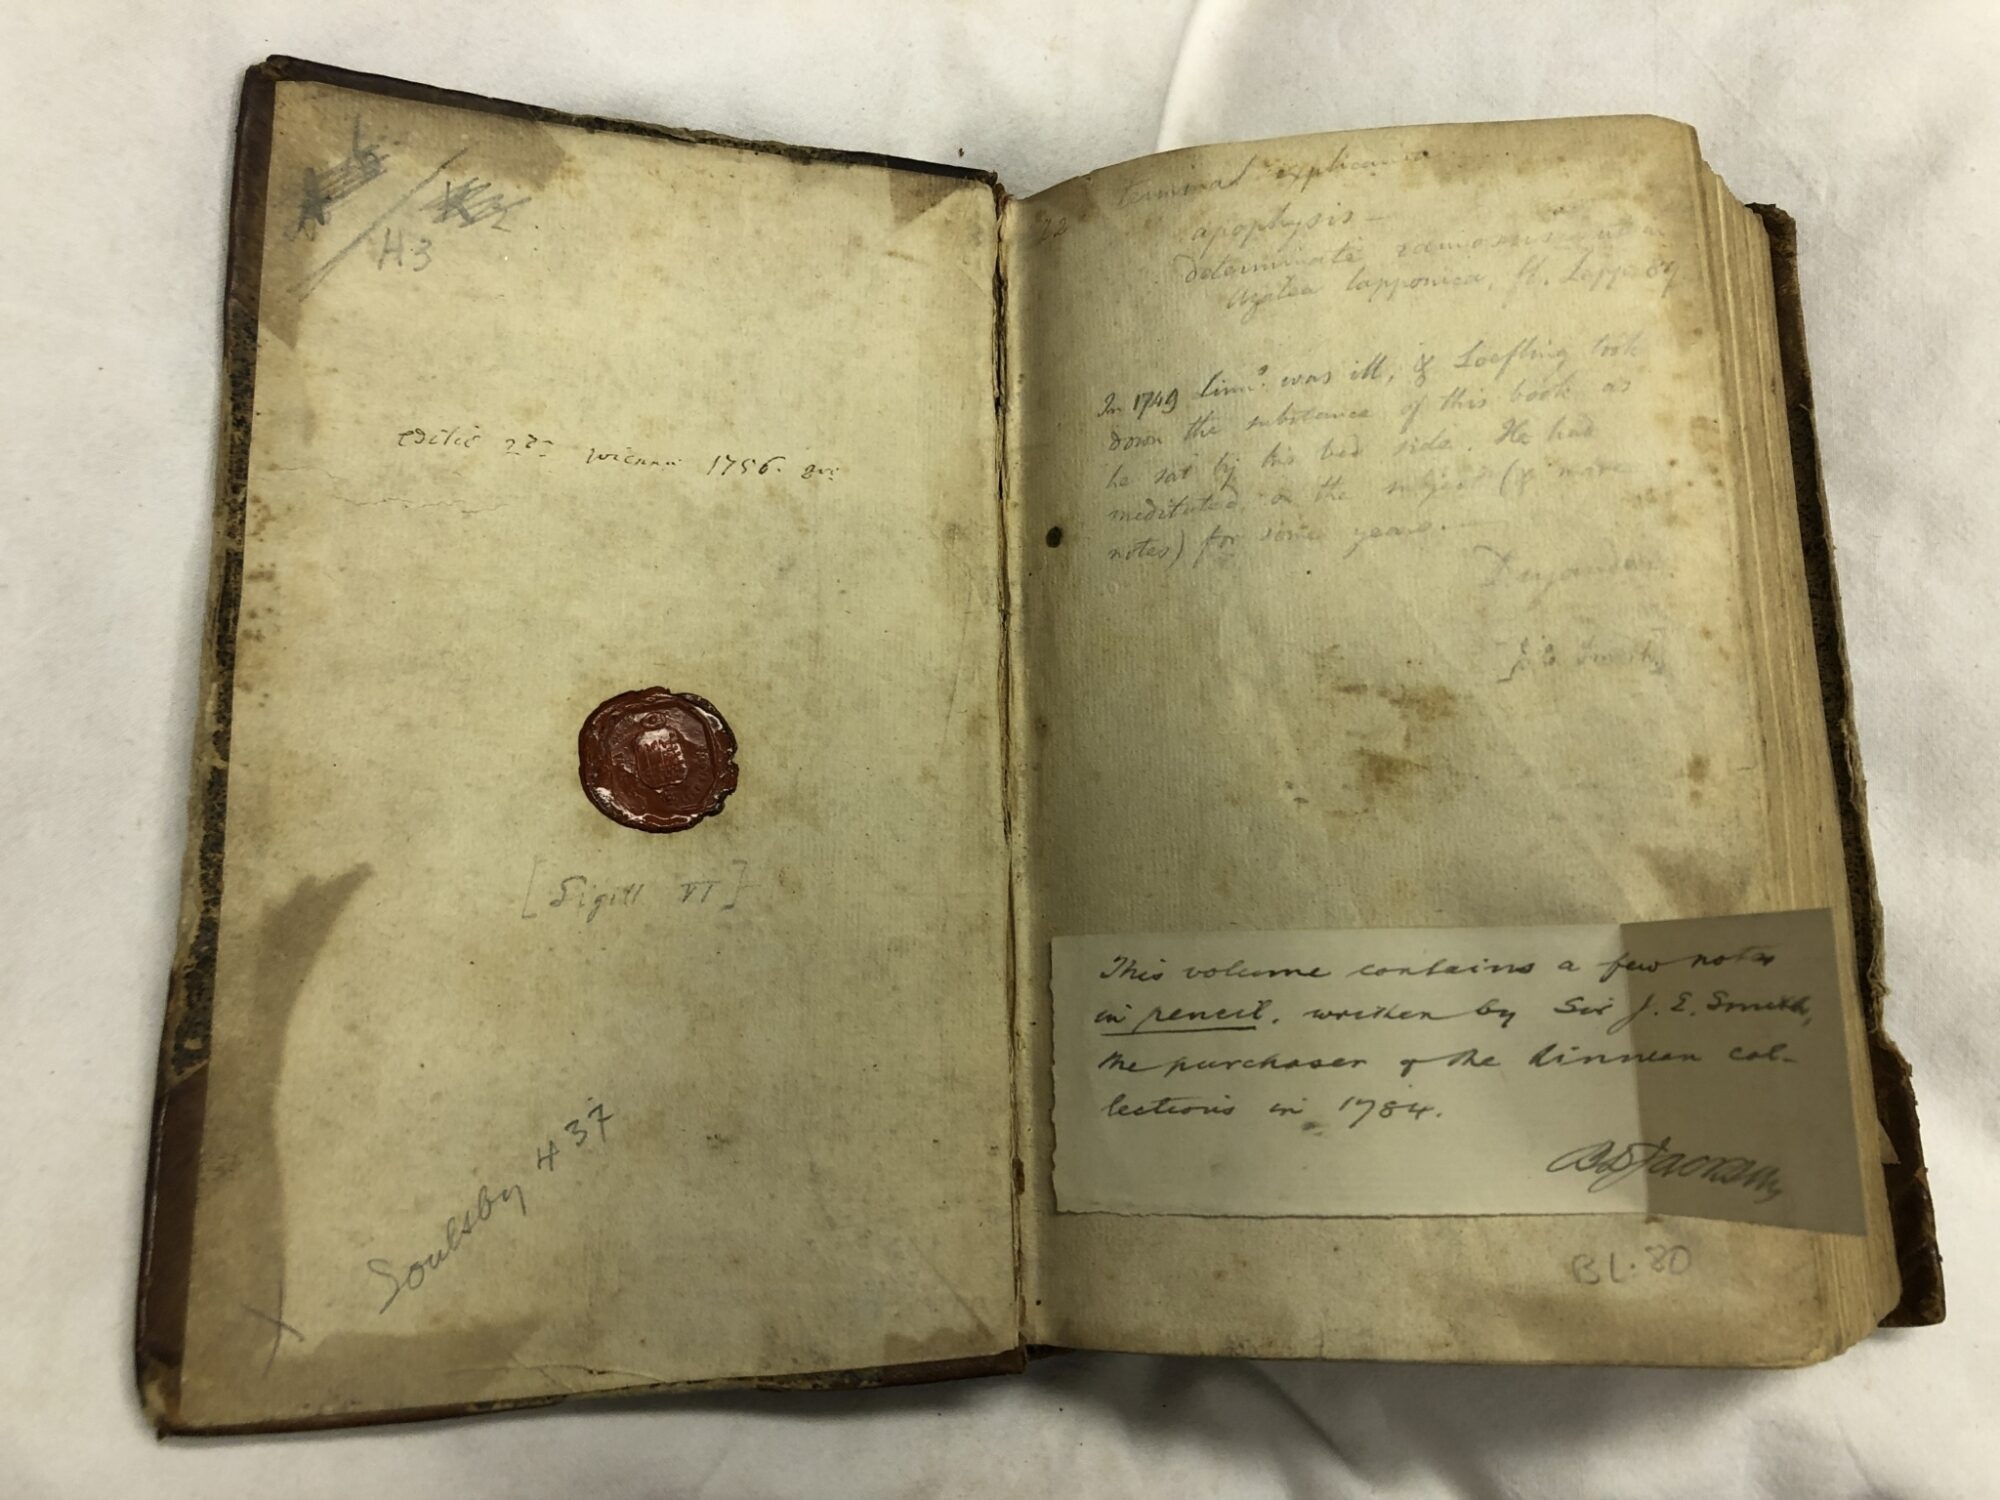 H3
editio 2da 1756. 8vo
[Sigill VI]
Soulsby 437
X
22
explicanda
apophysis —
determinate ramosus ut in
Azalea lapponica, fl. Lapp.
In 1749 Linns. was ill, & Loefling took
down the substance of this book as
he sat by his bed side. He had
meditated on the subject (& made
notes) for some years. —
Dryander.
[J. E. Smith]
This volume contains a few notes
in pencil, written by Sir J. E. Smith,
the purchaser of the Linnean col-
lections in 1784.
B D Jackson
BL.80